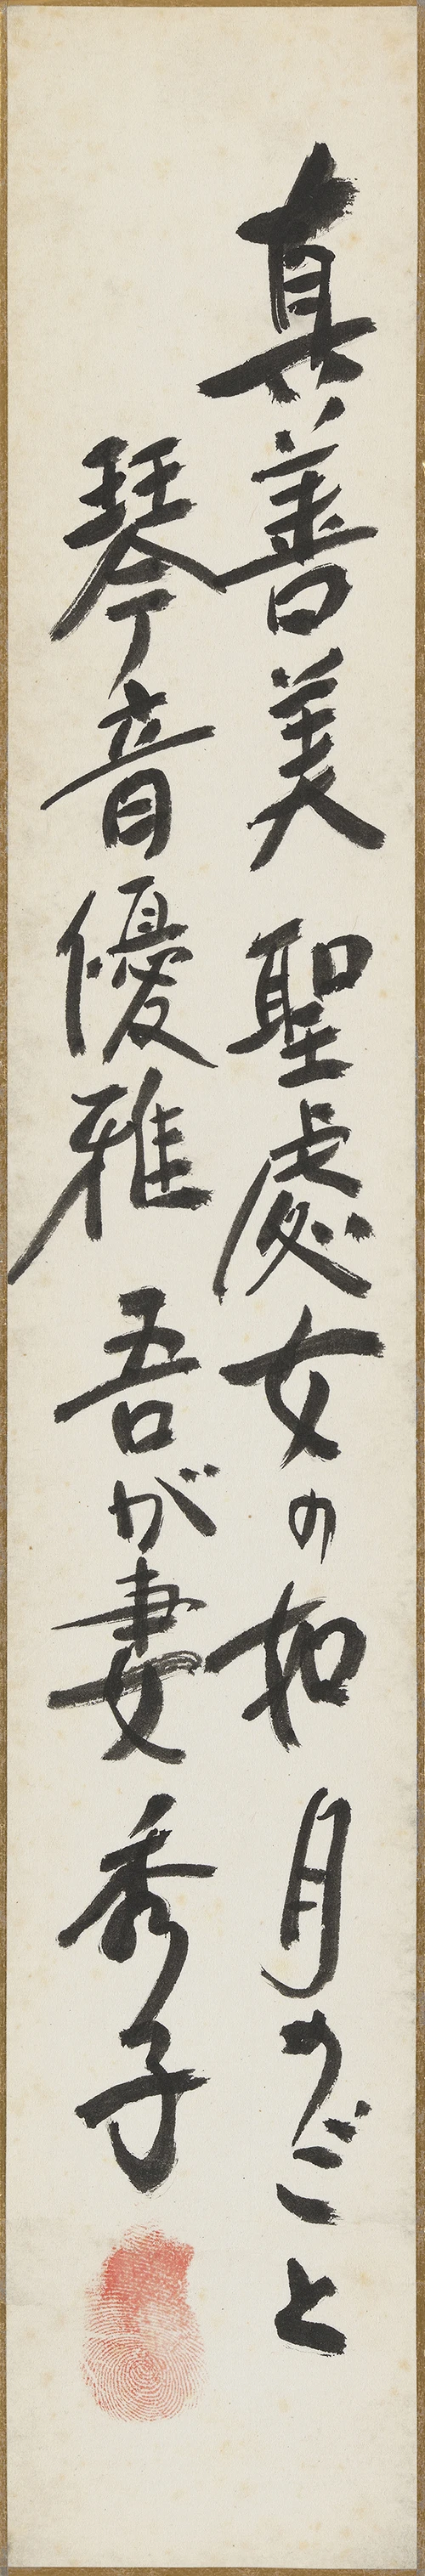 真善美 聖處女の如 月のごと
琴音優雅 吾が妻 秀子